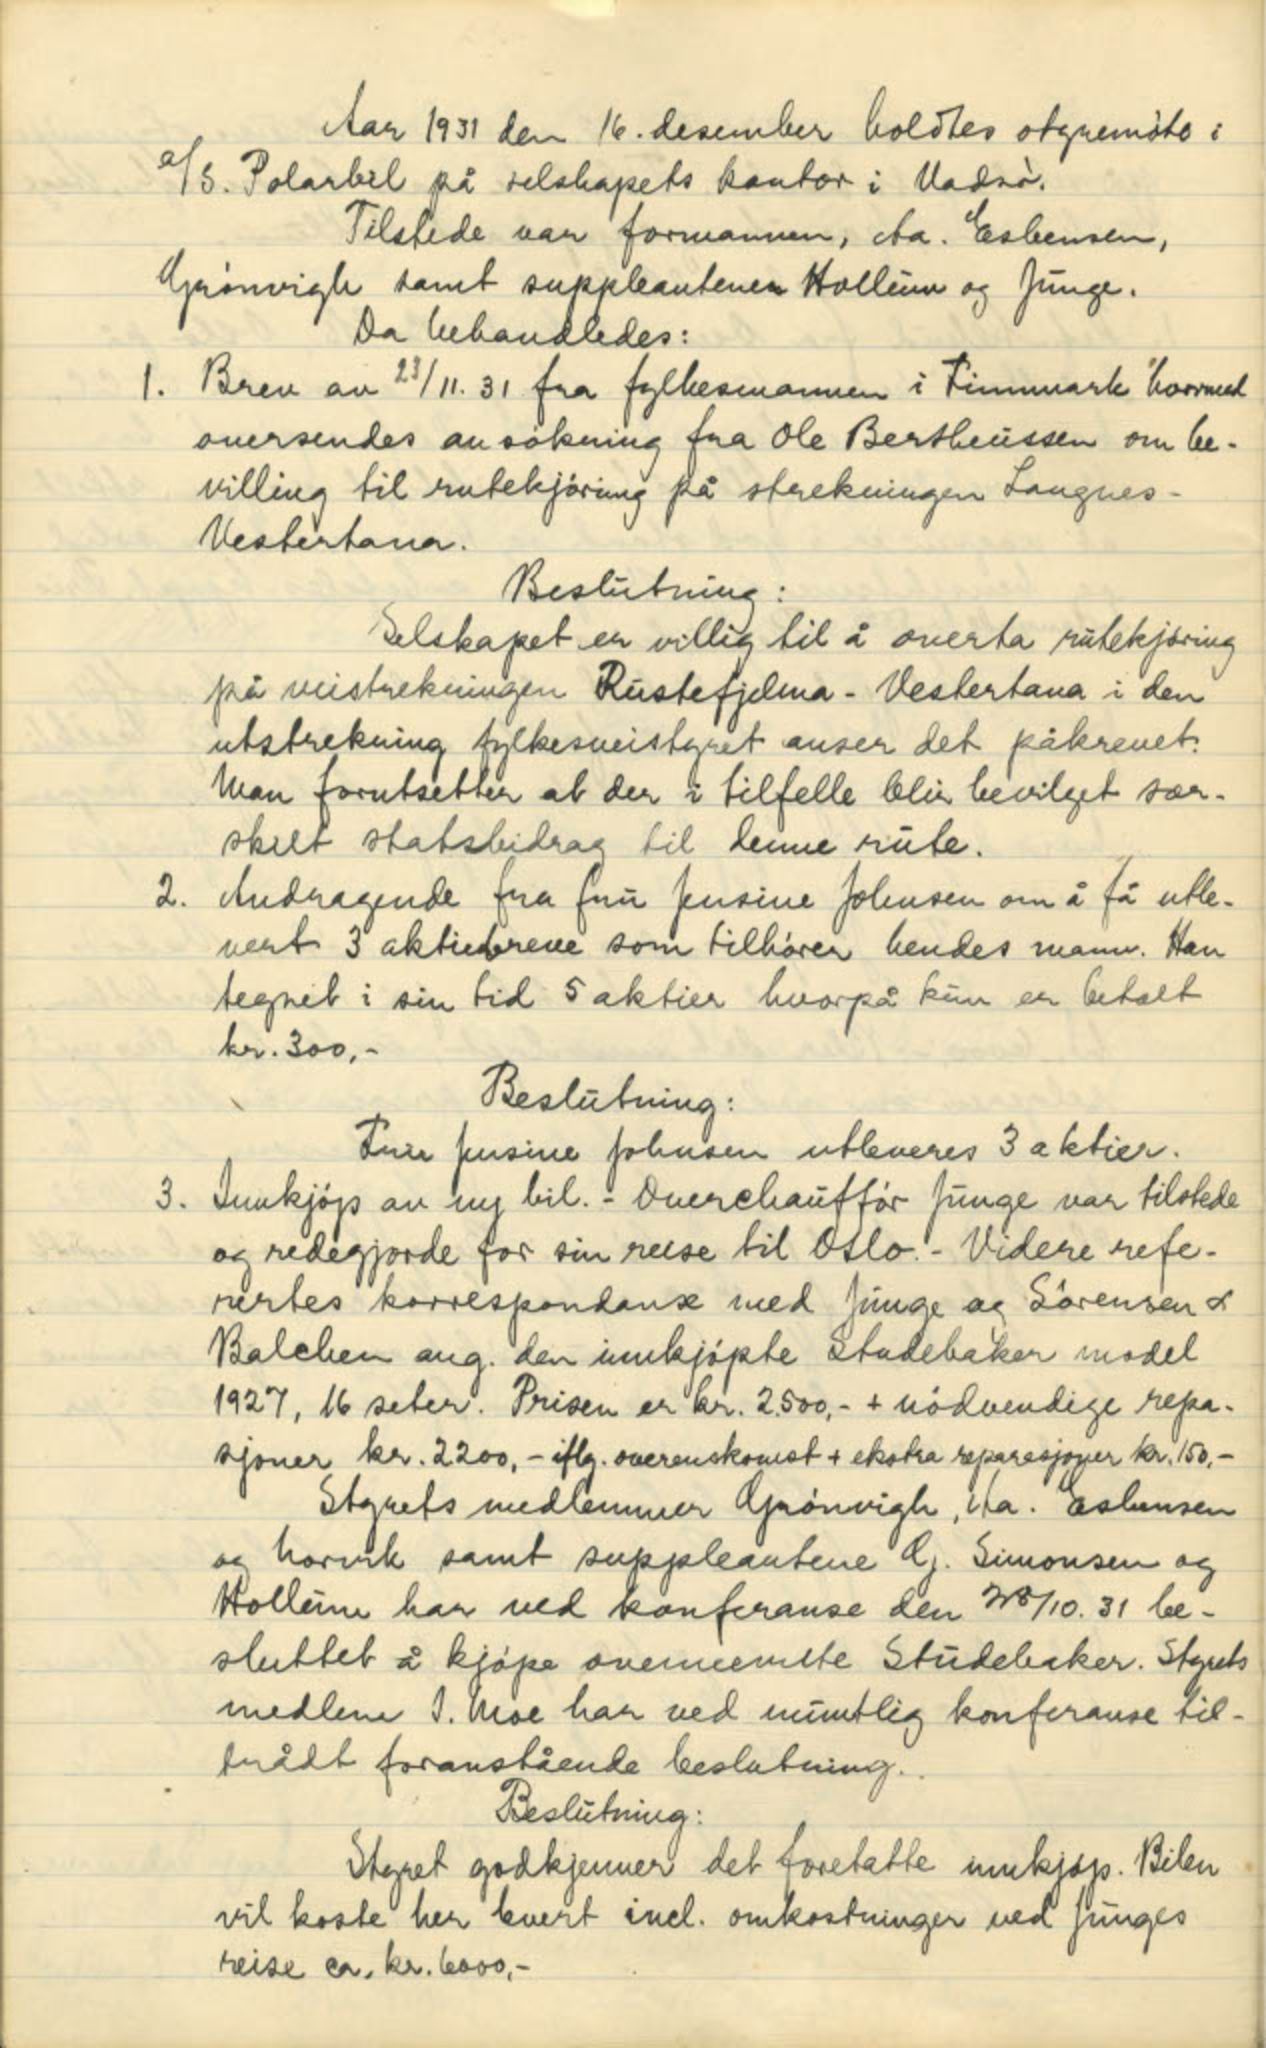 Aar 1931 den 16. desember holdtes styremöte i
a/s. Polarbil på selskapets kontor i Vadsö.
Tilstede var formannen, Aa. Esbensen,
Grönvigh samt suppleantene Hollum og Junge.
Da behandledes:
1. Brev av 23/11. 31 fra fylkesmannen i Finnmark hvormed
oversendes ansökning fra Ole Bertheussen om be-
villing til rutekjöring på strekningen Langnes-
Vestertana.
Beslutning:
Selskapet er villig til å overta rutekjöring
på veistrekningen Rustefjelma - Vestertana i den
utstrekning fylkesveistyret anser det påkrevet.
Man forutsetter at der i tilfelle blir bevilget sær-
skilt statsbidrag til denne rute.
2. Andragende fra fru Jensine Johnsen om å få utle-
vert 3 aktiebreve som tilhörer hendes mann. Han
tegnet i sin tid 5 aktier hvorpå kun er betalt
kr. 300,-
Beslutning:
Fru Jensine Johnsen utleveres 3 aktier.
3. Innkjöp av ny bil. - Overchaufför Junge var tilstede
og redegjorde for sin reise til Oslo. - Videre refe-
rertes korrespondanse med Junge og Sörensen &
Balchen ang. den innkjöpte Studebaker model
1927, 16 seter. Prisen er kr. 2.500,- + nödvendige repa-
sjoner kr. 2200,- iflg. overenskomst + ekstra reparasjoner kr. 150,-
Styrets medlemmer Grönvigh, Aa. Esbensen
og Norvik samt suppleantene G. Simonsen og
Hollum har ved konferanse den 28/10. 31 be-
sluttet å kjöpe ovennevnte Studebaker. Styrets
medlem I. Moe har ved muntlig konferanse til-
trådt foranstående beslutning.
Beslutning:
Styret godkjenner det foretatte innkjöp. Bilen
vil koste her levert incl. omkostninger ved Junges
reise ca. kr. 6000,-